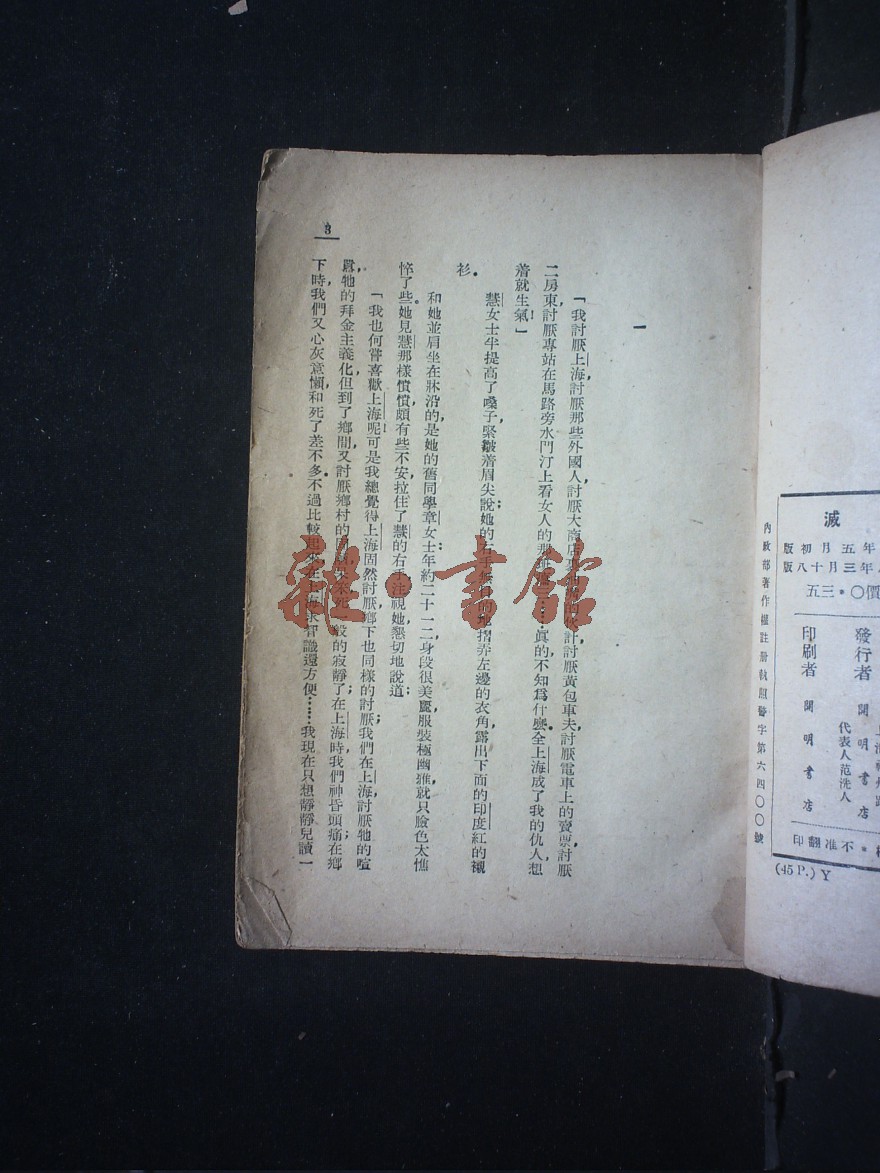 滅
年五月初版
年三月十八版
價〇•三五
發行者 開明書店
代表人范洗人
印刷者 開明書店
不准翻印
內政部著作權註册執照警字第六四〇〇號
(45 P.) Y
3
一
「我討厭上海，討厭那些外國人，討厭大商店計，討厭黃包車夫，討厭電車上的賣票，討厭
二房東，討厭專站在馬路旁水門汀上看女人的那……眞的，不知爲什麽，全上海成了我的仇人，想
着就生氣！」
慧女士半提高了嗓子，緊皺着眉尖說；她的右手摺弄左邊的衣角，露出下面的印度紅的襯
衫。
和她並肩坐在牀沿的，是她的舊同學章女士；年約二十一二，身段很美麗，服裝極幽雅，就只臉色太憔
悴了些。她見慧那樣憤憤，頗有些不安，拉住了慧的右手，注視她，懇切地說道：
「我也何嘗喜歡上海呢！可是我總覺得上海固然討厭，鄉下也同樣的討厭；我們在上海，討厭牠的喧
囂，牠的拜金主義化，但到了鄉間，又討厭鄉村的固般的寂靜了；在上海時我們神昏頭痛；在鄉
下時，我們又心灰意懶，和死了差不多。不過比較在上海求智識還方便……我現在只想靜靜兒讀一
雜•書館